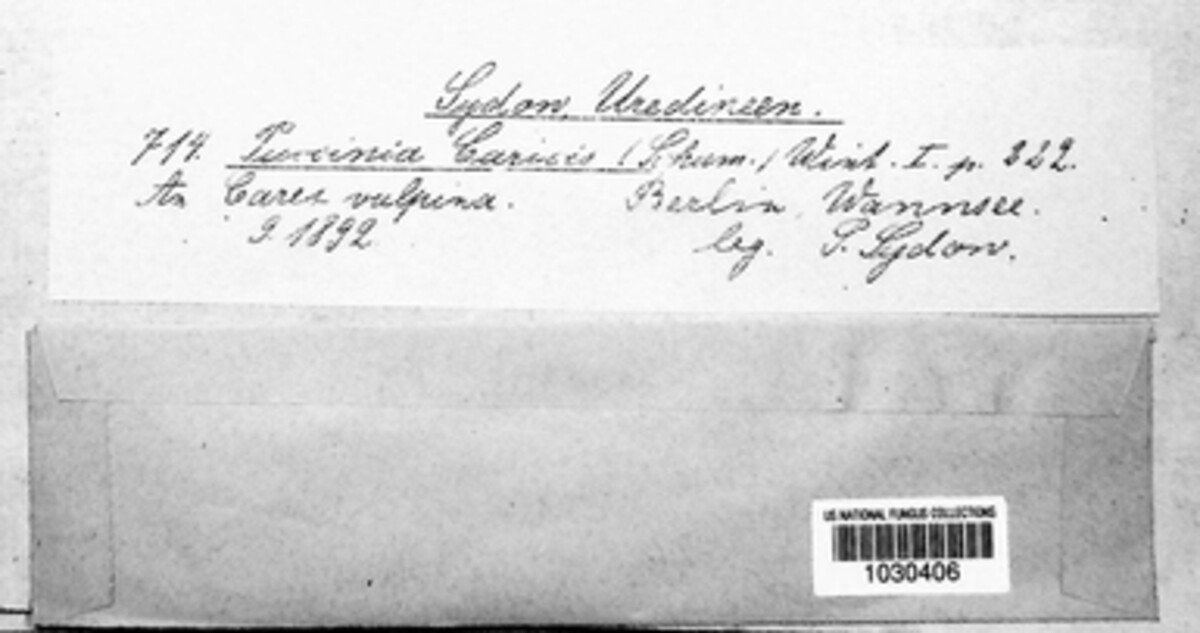 Sydow, Uredineen.
714. Puccinia Caricis (Schum.) Wint. I. p. 222.
An Carex vulpina. Berlin, Wannsee.
9. 1892 leg. P. Sydow.
US NATIONAL FUNGUS COLLECTIONS
1030406